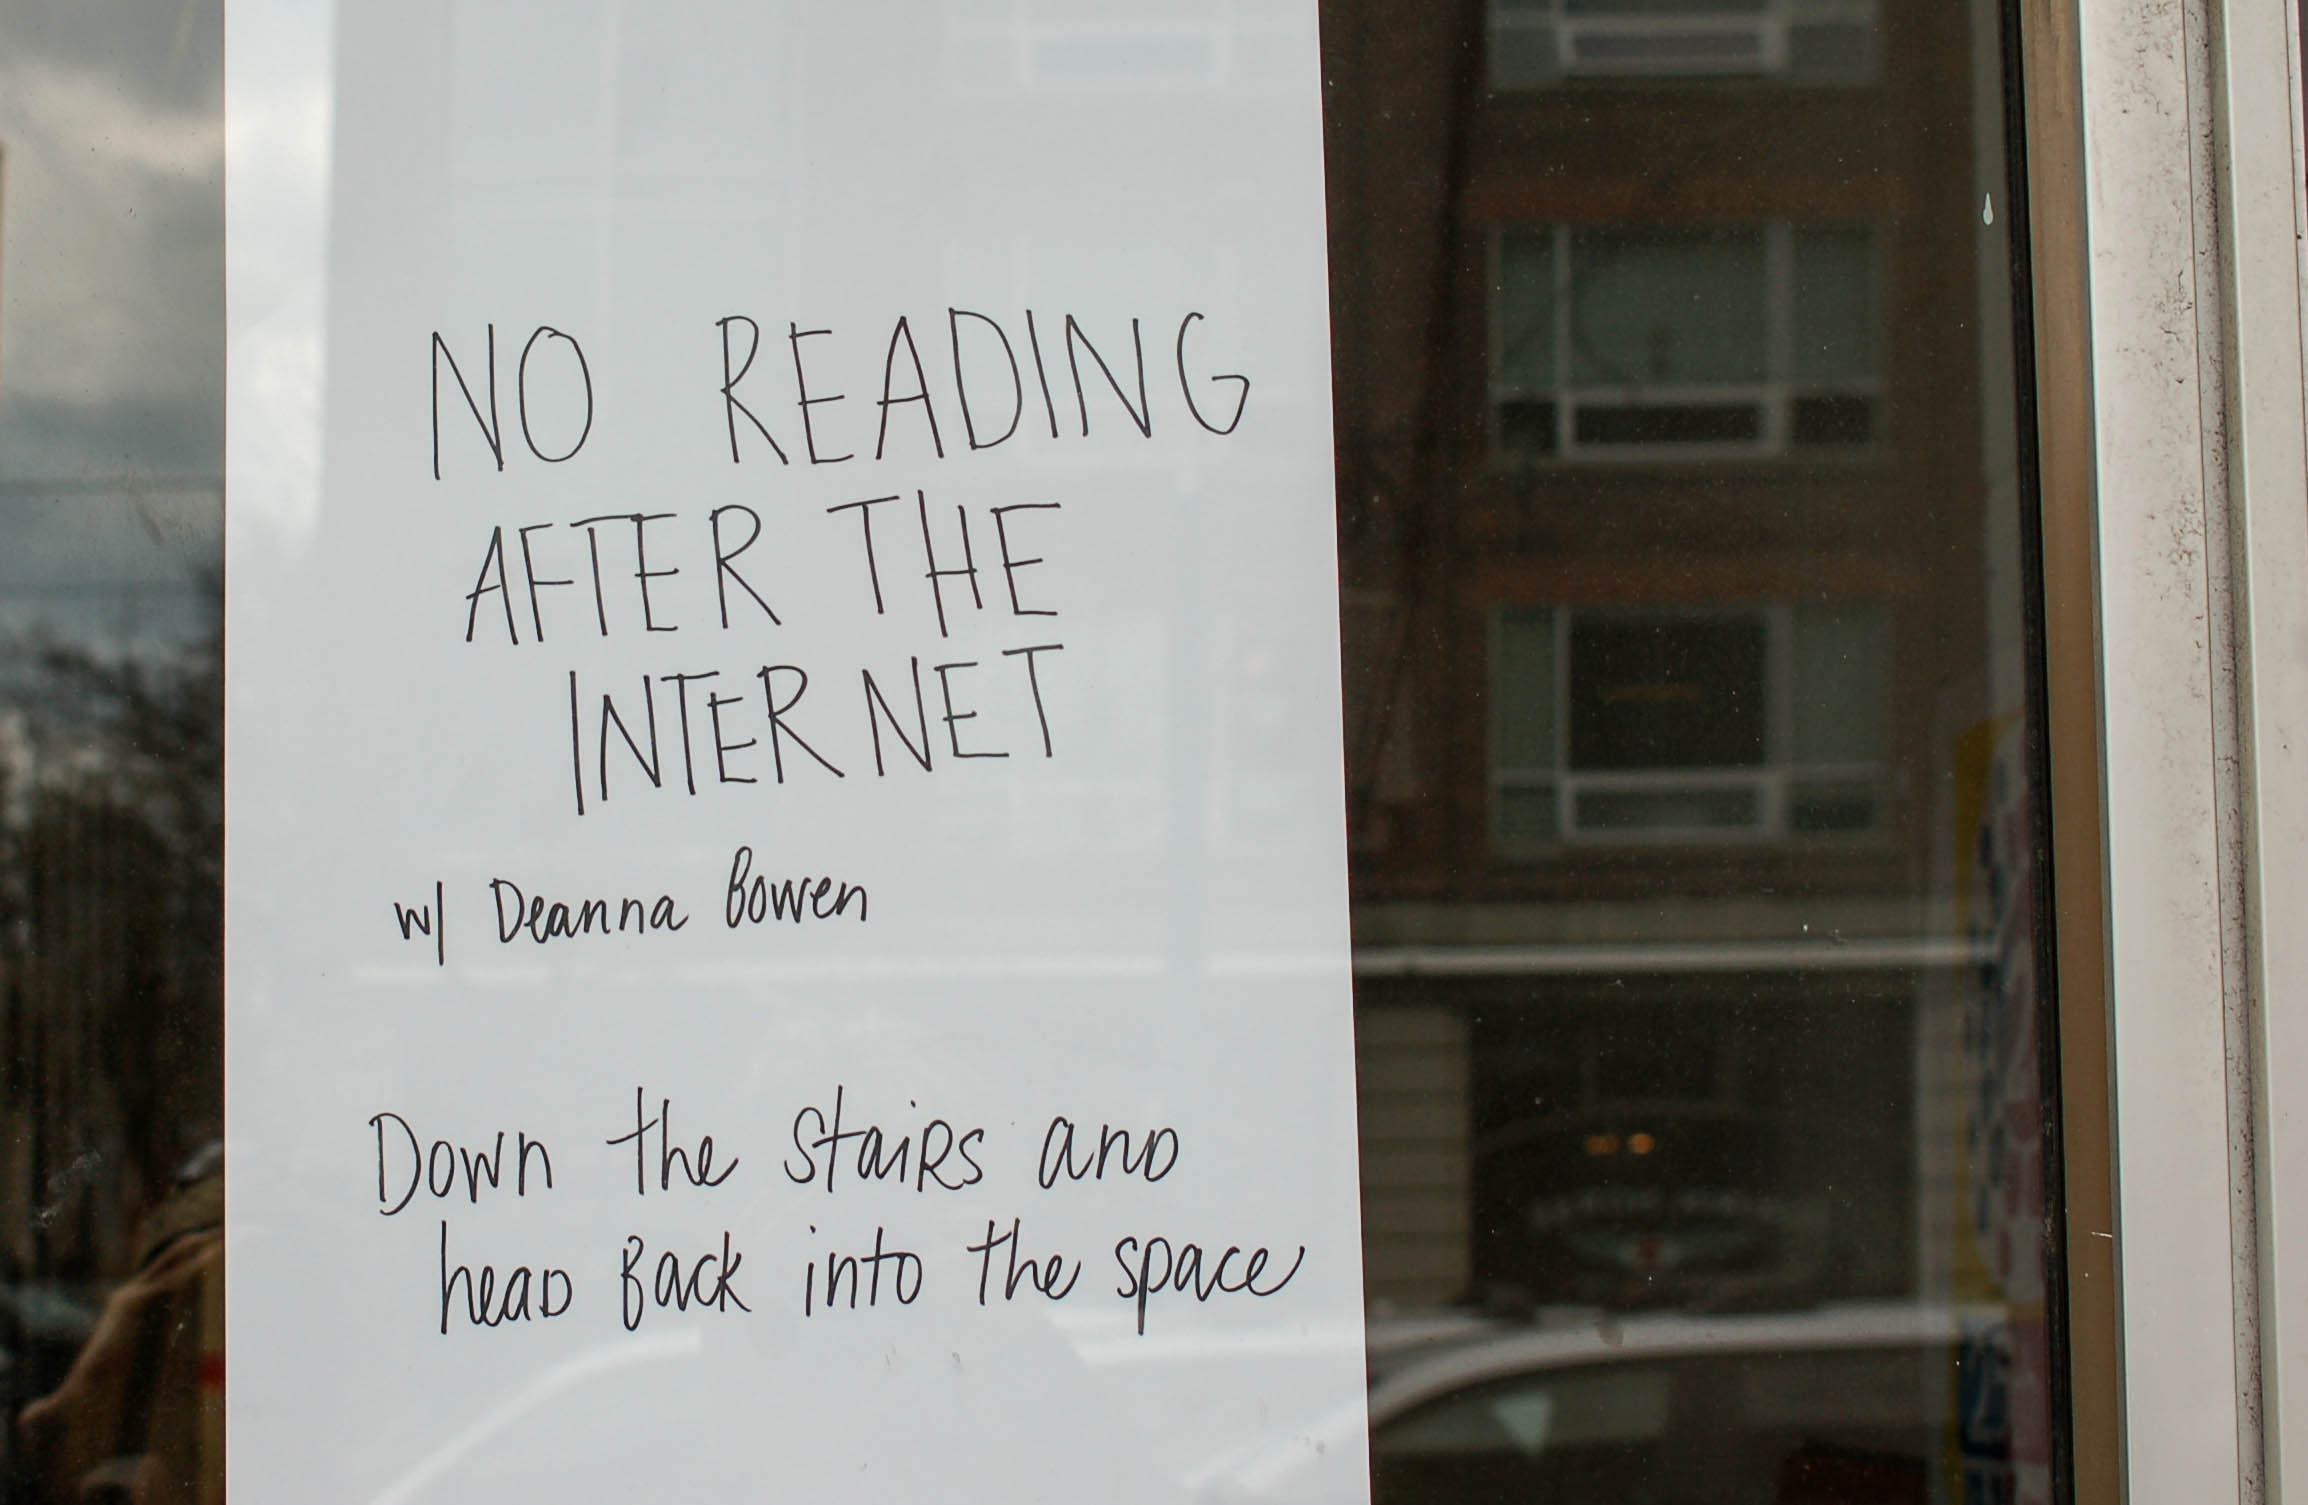 NO READING
AFTER THE
INTERNET
w/ Deanna Bowen
Down the stairs and
head back into the space